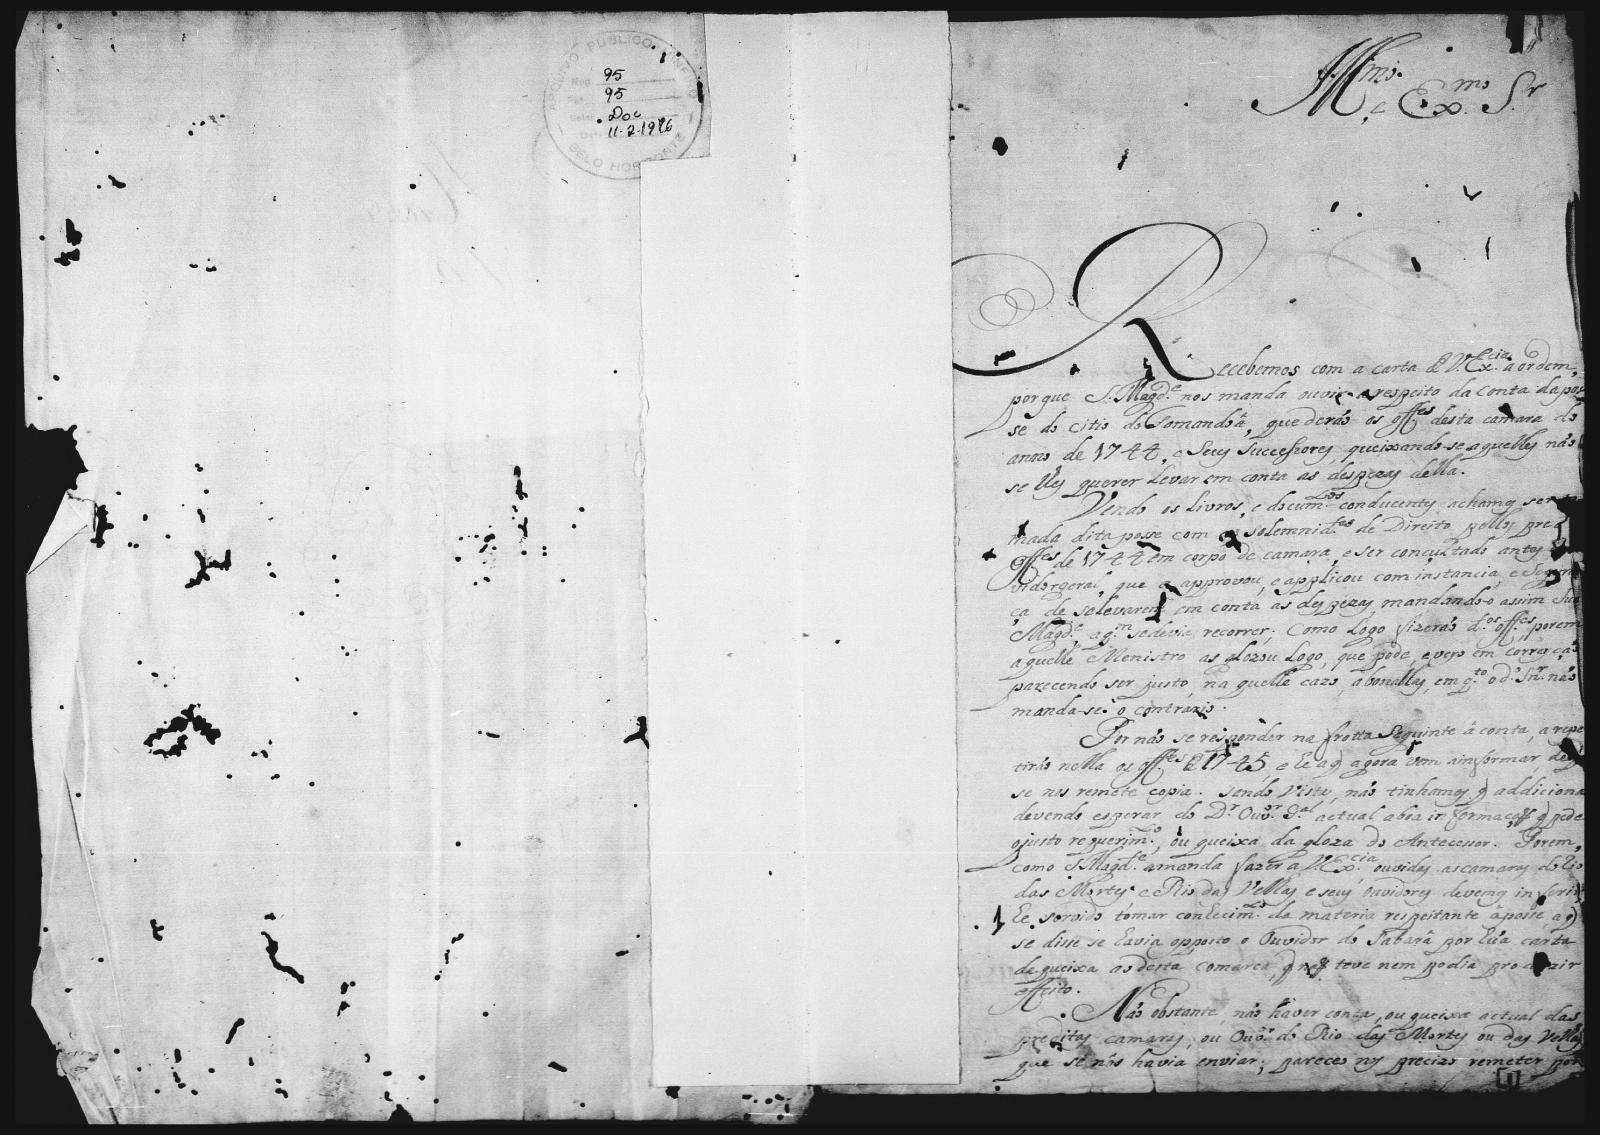 ARQUIVO PUBLICO MINEIRO
95
95
Doc
11-2-1976
BELO HORIZONTE
Illmo.
e Exmo. Sr
Recebemos com a carta de V. Excia. a ordem,
porque S. Magde. nos manda ouvir a respeito da conta da pos
se do citio do Tomanduá, que derão os offes desta camara do
anno de 1744, e seus successores queixando-se aquelles não
se lhes querer levar em conta as despezas della.
Vendo os livros, e documtos. conducentes, achamos ser to
mada dita posse com as solemnides. de Direito pellos pred
offes de 1744 em corpo de camara, e ser conçultado antes
vidor geral, que a approvou, e applicou com instancia, e segu
ça de se levarem em conta as despezas mandando-o assim Sua
Magde. a qm. se devia recorrer. Como logo fizerão dos. offes, porem
aquelle Menistro as glozou logo, que pode, e veyo em correyção
parecendo ser justo, na quelle cazo, abonallas, em qto. o do. Snr. não
manda-se o contrario.
Por não se responder na frotta seguinte á conta, a repe
tirão nella os offes. de 1745, e he a q agora vem a informar de q
se nos remete copia. Sendo vista, não tinhamos q addiciona
devendo esperar do Dr. Ouvor. Gal. actual a boa informação q pede
o justo requerimto., ou queixa da gloza do Antecessor. Porem,
como S. Magde. a manda fazer a V. Excia. ouvidas as camaras do Rio
das Mortes e Rio das Velhas e seus ouvidores devemos inferir
he servido tomar conhecimto. da materia respeitante á posse a q
se disse se havia opposto o Ouvidor do Sabará por hũa carta
de queixa aos desta comarca, q não teve nem podia produzir
effeito.
Não obstante não haver conta, ou queixa actual das
preditas camaras, ou Ouvor. do Rio das Mortes ou das Velhas
que se nos havia enviar; pareceo nos precizo remeter por
[1]